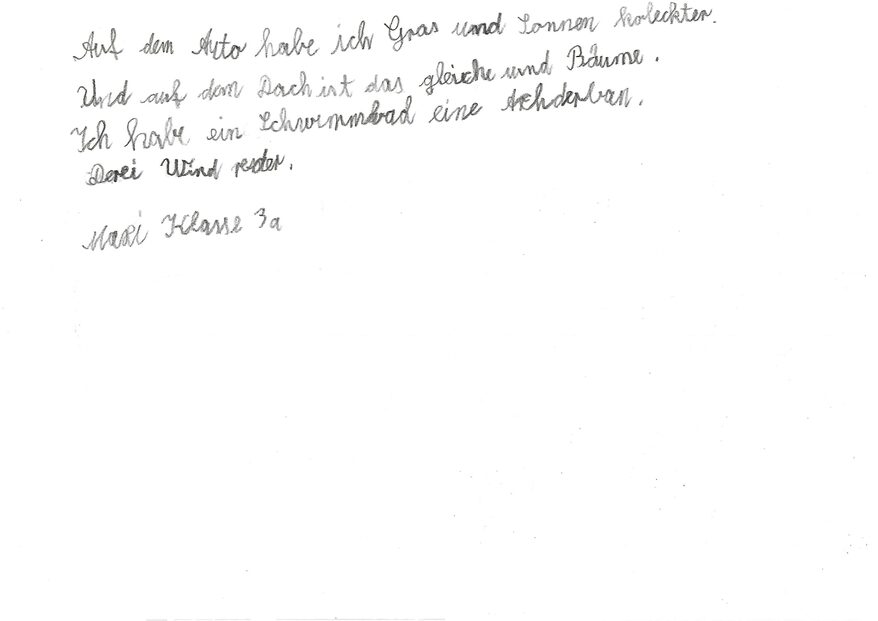 Auf dem Auto habe ich Gras und Sonnen koleckter.
Und auf dem Dach ist das gleiche und Bäume.
Ich habe ein Schwimmbad eine Achderban.
Derei Wind reder.
Maxi Klasse 3a